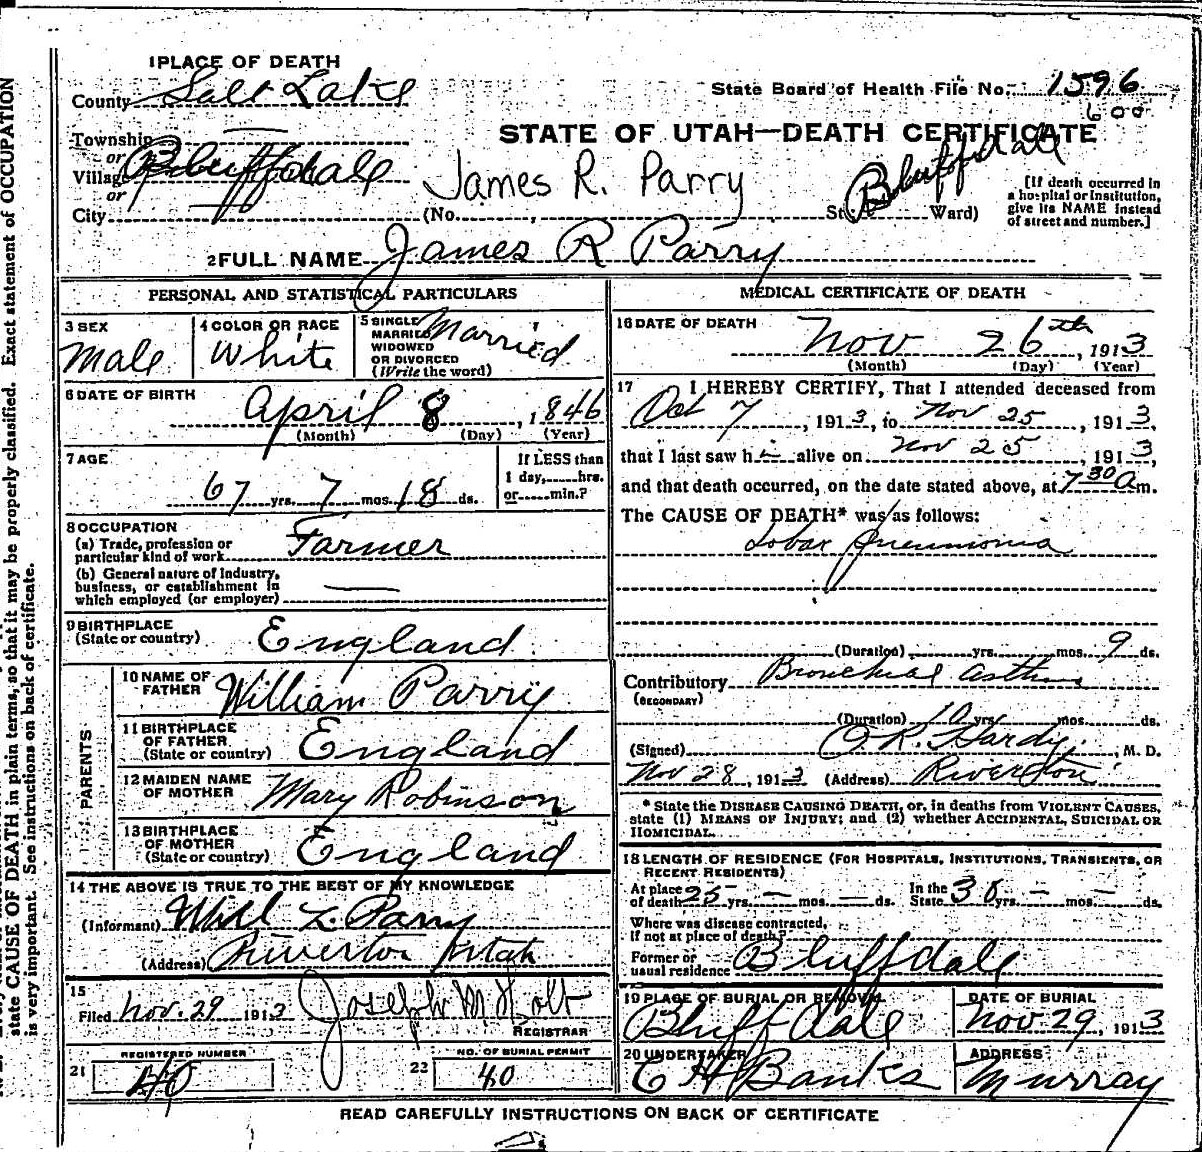 1 PLACE OF DEATH
County Salt Lake
State Board of Health File No. 1596
600
Township —
or
Village Bluffdale
or
City
STATE OF UTAH—DEATH CERTIFICATE
James R. Parry
(No. , St. Bluffdale Ward)
[If death occurred in
a hospital or institution,
give its NAME instead
of street and number.]
2 FULL NAME James R Parry
PERSONAL AND STATISTICAL PARTICULARS
3 SEX
Male
4 COLOR OR RACE
White
5 SINGLE
MARRIED
WIDOWED
OR DIVORCED
(Write the word)
Married
6 DATE OF BIRTH
April 8, 1846
(Month) (Day) (Year)
7 AGE
67 yrs. 7 mos. 18 ds.
If LESS than
1 day, hrs.
or min.?
8 OCCUPATION
(a) Trade, profession or
particular kind of work Farmer
(b) General nature of industry,
business, or establishment in
which employed (or employer) —
9 BIRTHPLACE
(State or country) England
PARENTS
10 NAME OF
FATHER William Parry
11 BIRTHPLACE
OF FATHER
(State or country) England
12 MAIDEN NAME
OF MOTHER Mary Robinson
13 BIRTHPLACE
OF MOTHER
(State or country) England
14 THE ABOVE IS TRUE TO THE BEST OF MY KNOWLEDGE
(Informant) Will L. Parry
(Address) Riverton Utah
15
Filed Nov. 29 1913 Joseph M. Holt
REGISTRAR
REGISTERED NUMBER
21 40
NO. OF BURIAL PERMIT
22 40
MEDICAL CERTIFICATE OF DEATH
16 DATE OF DEATH
Nov 26th, 1913
(Month) (Day) (Year)
17 I HEREBY CERTIFY, That I attended deceased from
Oct 7, 1913, to Nov 25, 1913,
that I last saw h i— alive on Nov 25, 1913,
and that death occurred, on the date stated above, at 7 30 a m.
The CAUSE OF DEATH* was as follows:
Lobar Pneumonia
(Duration) yrs. mos. 9 ds.
Contributory Bronchial asthma
(SECONDARY)
(Duration) 10 yrs. mos. ds.
(Signed) O. R. Hardy, M. D.
Nov 28, 1913 (Address) Riverton
* State the DISEASE CAUSING DEATH, or, in deaths from VIOLENT CAUSES,
state (1) MEANS OF INJURY; and (2) whether ACCIDENTAL, SUICIDAL OR
HOMICIDAL.
18 LENGTH OF RESIDENCE (FOR HOSPITALS, INSTITUTIONS, TRANSIENTS, OR
RECENT RESIDENTS)
At place
of death 25 yrs. — mos. — ds. In the
State 38 yrs. — mos. — ds.
Where was disease contracted,
if not at place of death?
Former or
usual residence Bluffdale
19 PLACE OF BURIAL OR REMOVAL
Bluffdale
DATE OF BURIAL
Nov 29, 1913
20 UNDERTAKER
C H Banks
ADDRESS
Murray
READ CAREFULLY INSTRUCTIONS ON BACK OF CERTIFICATE
state CAUSE OF DEATH in plain terms, so that it may be properly classified. Exact statement of OCCUPATION
is very important. See instructions on back of certificate.